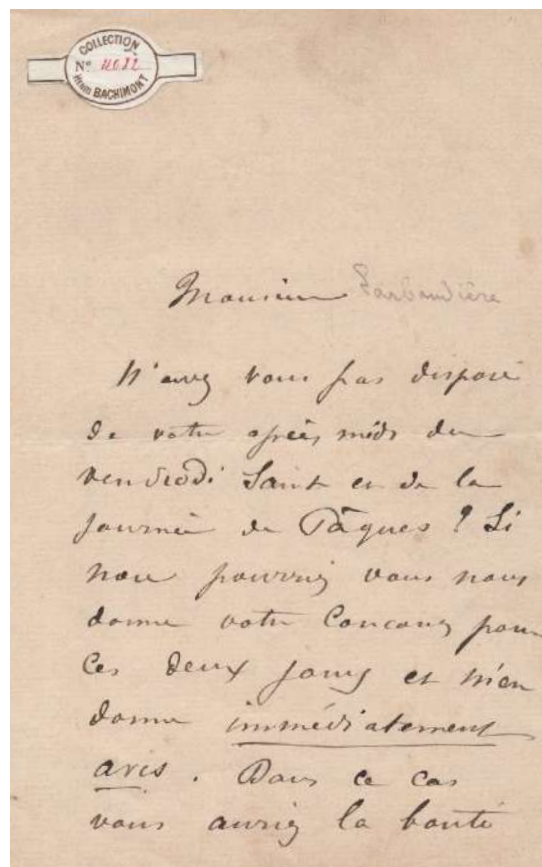 COLLECTION
N° 4022
HENRI BACHIMONT
Monsieur
N'avez vous pas disposé
de votre après midi du
vendredi Saint et de la
journée de Pâques ? Si
non pourriez vous nous
donner votre concours pour
ces deux jours et m'en
donner immédiatement
avis. Dans ce cas
vous auriez la bonté